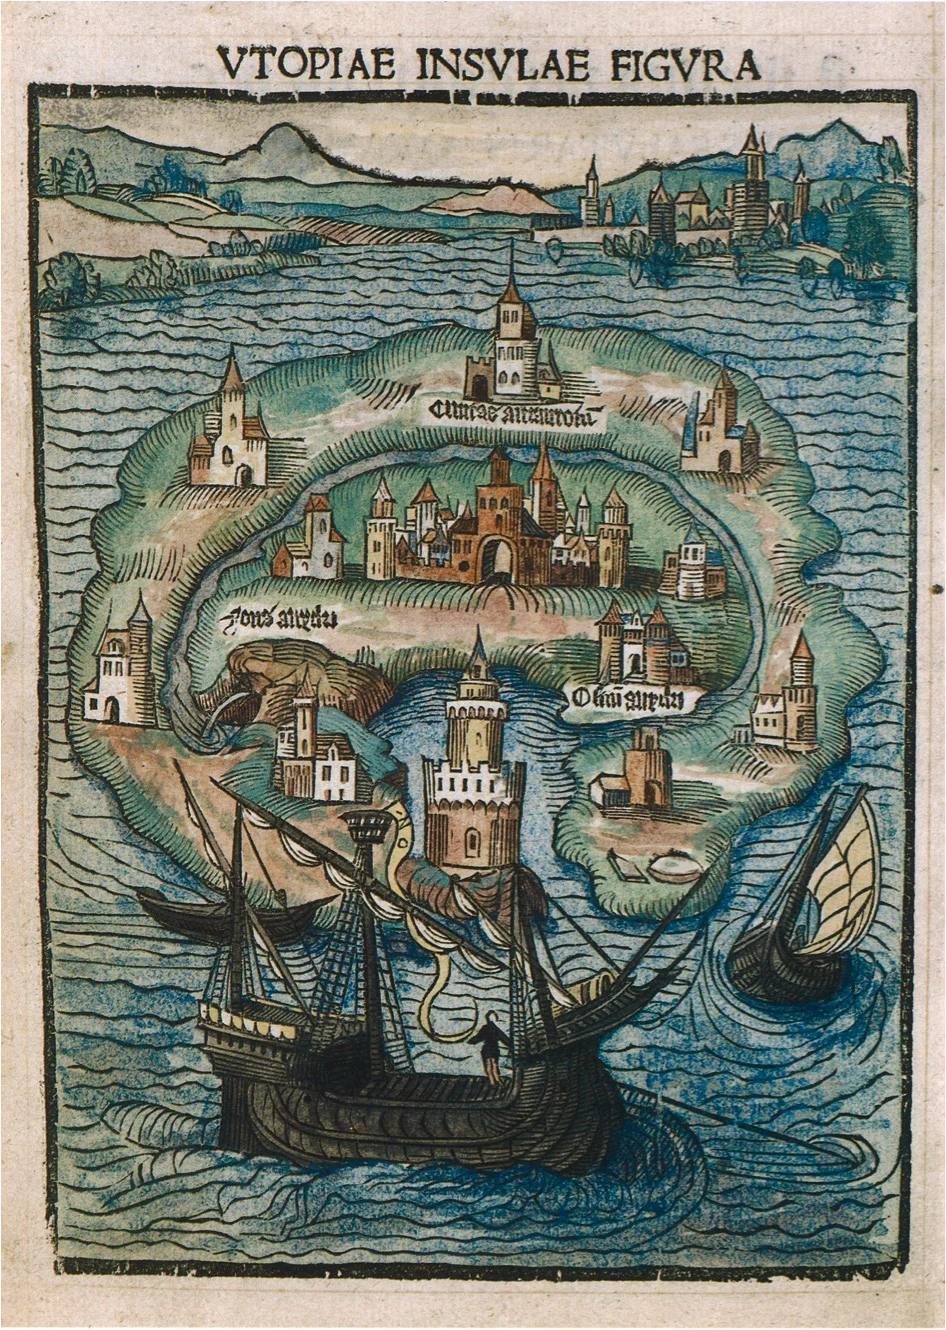 VTOPIAE INSVLAE FIGVRA
Ciuitas amaurotū
Fons anydri
Ostiū anydri